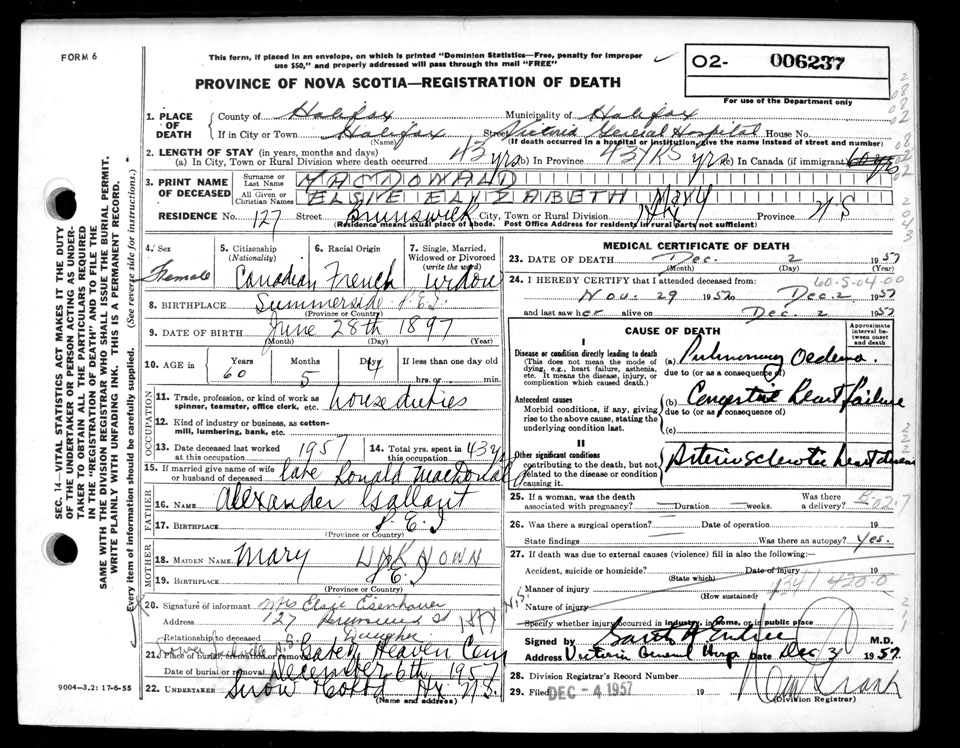 FORM 6
This form, if placed in an envelope, on which is printed "Dominion Statistics—Free, penalty for improper
use $50," and properly addressed will pass through the mail "FREE"
PROVINCE OF NOVA SCOTIA—REGISTRATION OF DEATH
O2- 006237
For use of the Department only
1. PLACE OF DEATH
County of Halifax Municipality of Halifax
If in City or Town Halifax Street Victoria General Hospital House No.
(Name) (If death occurred in a hospital or institution, give the name instead of street and number)
2. LENGTH OF STAY (in years, months and days)
(a) In City, Town or Rural Division where death occurred 43 yrs (b) In Province 43 yrs (c) In Canada (if immigrant)
3. PRINT NAME OF DECEASED
Surname or Last Name MACDONALD
All Given or Christian Names ELSIE ELIZABETH Mary
RESIDENCE No. 127 Street Brunswick City, Town or Rural Division Hfx Province N S
(Residence means usual place of abode. Post Office Address for residents in rural parts not sufficient)
4. Sex Female
5. Citizenship (Nationality) Canadian
6. Racial Origin French
7. Single, Married, Widowed or Divorced (write the word) widow
8. BIRTHPLACE Summerside P.E.I
(Province or Country)
9. DATE OF BIRTH June 28th 1897
(Month) (Day) (Year)
10. AGE in Years 60 Months 5 Days 4 If less than one day old hrs. or min.
OCCUPATION
11. Trade, profession, or kind of work as spinner, teamster, office clerk, etc. house duties
12. Kind of industry or business, as cotton-mill, lumbering, bank, etc.
13. Date deceased last worked at this occupation 1957
14. Total yrs. spent in this occupation 43 yrs
15. If married give name of wife or husband of deceased late Ronald MacDonald
FATHER
16. NAME Alexander Gallant
17. BIRTHPLACE P.E.I
(Province or Country)
MOTHER
18. MAIDEN NAME Mary UNKNOWN
19. BIRTHPLACE P.E.I
(Province or Country)
20. Signature of informant Mrs Elsie Eisenhauer
Address 127 Brunswick St Hfx
Relationship to deceased Daughter
21. Place of burial, cremation or removal Gate of Heaven Cem
Lower Sackville N.S.
Date of burial or removal December 6th 1957
22. UNDERTAKER Snow Hfx N.S.
(Name and address)
9004-3.2: 17-6-55
MEDICAL CERTIFICATE OF DEATH
23. DATE OF DEATH Dec. 2 1957
(Month) (Day) (Year)
60-5-04-00
24. I HEREBY CERTIFY that I attended deceased from:
Nov. 29 1957 to Dec. 2 1957
and last saw her alive on Dec. 2 1957
CAUSE OF DEATH
Approximate interval between onset and death
I
Disease or condition directly leading to death
(This does not mean the mode of dying, e.g., heart failure, asthenia, etc. It means the disease, injury, or complication which caused death.)
(a) Pulmonary Oedema.
due to (or as a consequence of)
Antecedent causes
Morbid conditions, if any, giving rise to the above cause, stating the underlying condition last.
(b) Congestive heart failure
due to (or as consequence of)
(c)
II
Other significant conditions
contributing to the death, but not related to the disease or condition causing it.
Arteriosclerotic heart disease
25. If a woman, was the death associated with pregnancy? Duration weeks. Was there a delivery?
26. Was there a surgical operation? Date of operation 19
State findings Was there an autopsy? Yes.
27. If death was due to external causes (violence) fill in also the following:
Accident, suicide or homicide? Date of injury 19
(State which)
Manner of injury
(How sustained)
420-0
Nature of injury
Specify whether injury occurred in industry, in home, or in public place
Signed by M.D.
Address Victoria General Hosp Date Dec 3 1957.
28. Division Registrar's Record Number
29. Filed DEC - 4 1957 19
(Division Registrar)
SEC. 14—VITAL STATISTICS ACT MAKES IT THE DUTY
OF THE UNDERTAKER OR PERSON ACTING AS UNDER-
TAKER TO OBTAIN ALL THE PARTICULARS REQUIRED
IN THE "REGISTRATION OF DEATH" AND TO FILE THE
SAME WITH THE DIVISION REGISTRAR WHO SHALL ISSUE THE BURIAL PERMIT.
WRITE PLAINLY WITH UNFADING INK. THIS IS A PERMANENT RECORD.
Every item of information should be carefully supplied. (See reverse side for instructions.)